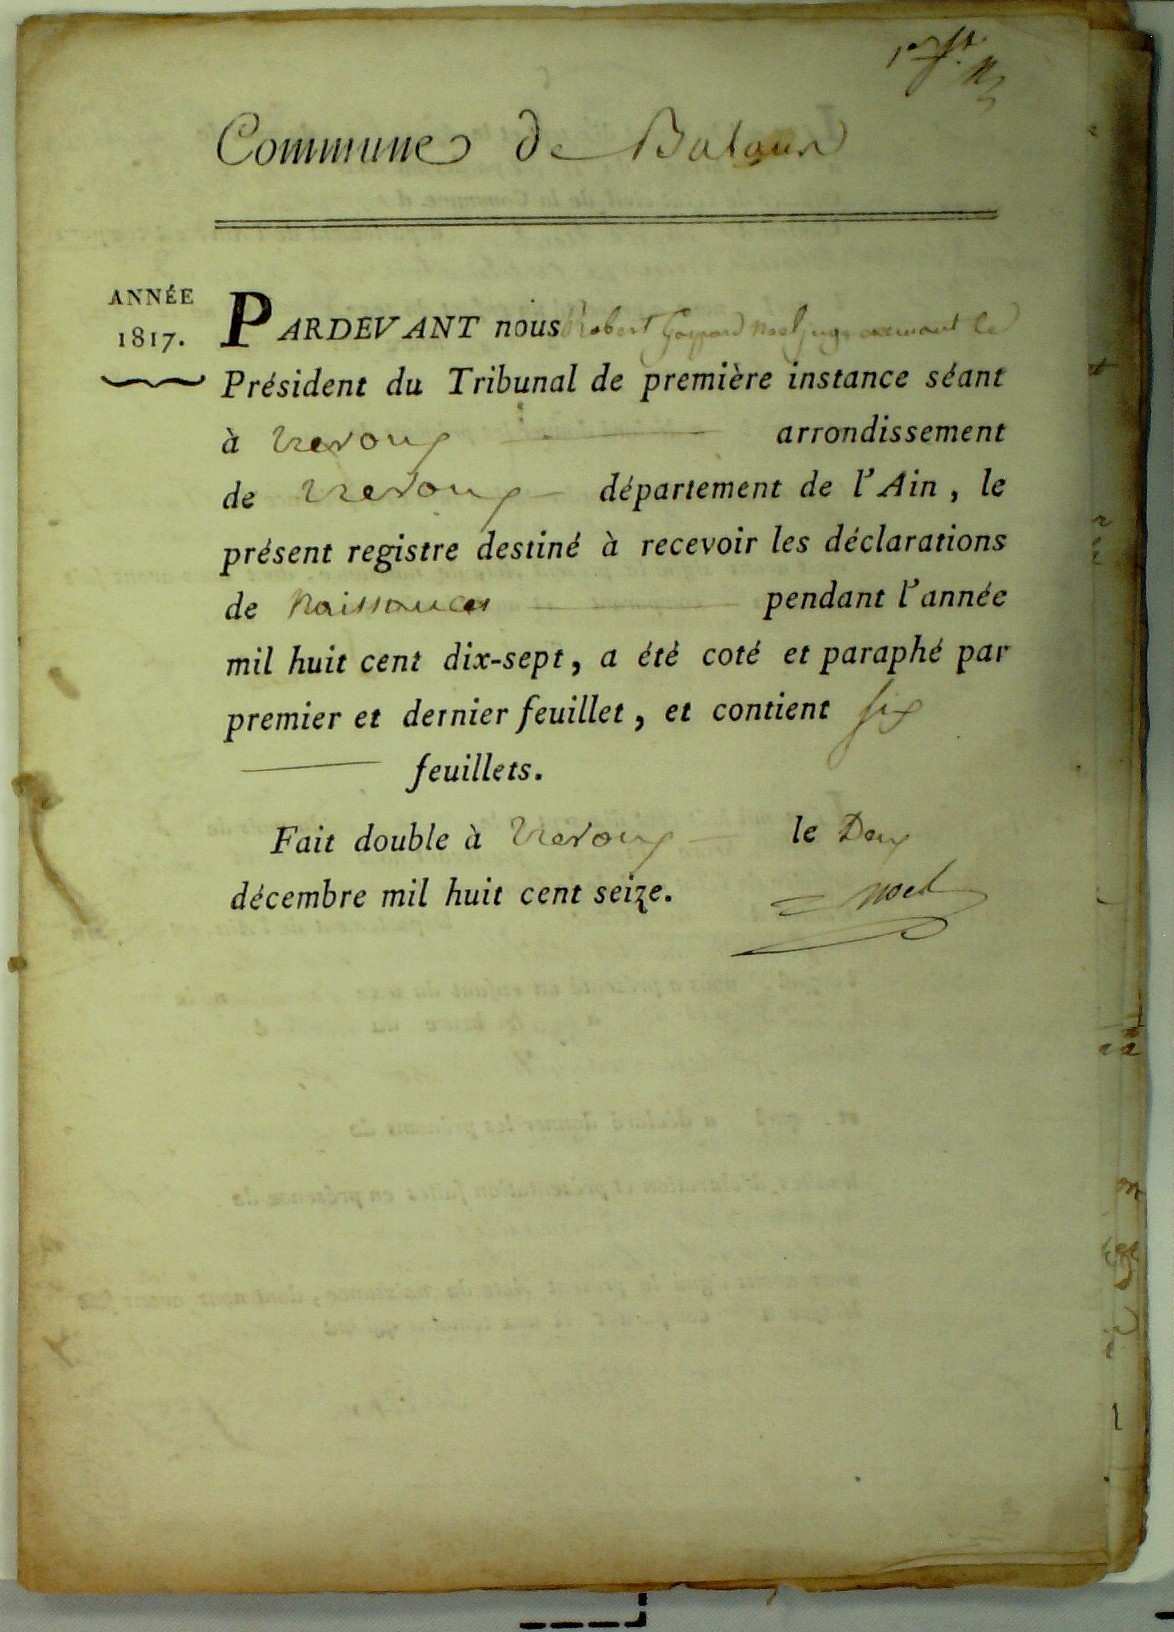 Commune de Balan
ANNÉE
1817.
PARDEVANT nous Robert Gaspard Noel juge exerçant le
Président du Tribunal de première instance séant
à Trevoux arrondissement
de Trevoux département de l'Ain, le
présent registre destiné à recevoir les déclarations
de Naissances pendant l'année
mil huit cent dix-sept, a été coté et paraphé par
premier et dernier feuillet, et contient six
feuillets.
Fait double à Trevoux le Deux
décembre mil huit cent seize.
Noel